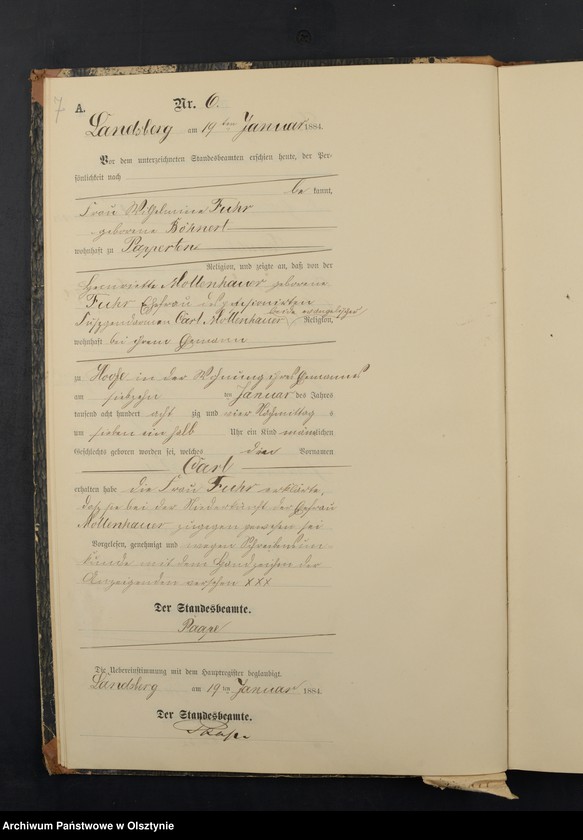 7
A.
Nr. 6.
Landsberg am 19ten Januar 1884.
Vor dem unterzeichneten Standesbeamten erschien heute, der Per-
sönlichkeit nach
be kannt,
Frau Wilhelmine Fuhr
geborene Böhnert
wohnhaft zu Papperten
Religion, und zeigte an, daß von der
Henriette Mollenhauer geborene
Fuhr Ehefrau des
Carl Mollenhauer beide evangelischer Religion,
wohnhaft bei ihrem Ehemann
zu Hoofe in der Wohnung ihres Ehemannes
am siebzehn ten Januar des Jahres
tausend acht hundert acht zig und vier Nachmittag s
um sieben ein halb Uhr ein Kind männlichen
Geschlechts geboren worden sei, welches den Vornamen
Carl
erhalten habe die Frau Fuhr erklärte,
daß sie bei der Niederkunft der Ehefrau
Mollenhauer zugegen gewesen sei
Vorgelesen, genehmigt und wegen Schreibensun-
kunde mit dem Handzeichen der
Anzeigenden versehen XXX
Der Standesbeamte.
Paape
Die Uebereinstimmung mit dem Hauptregister beglaubigt.
Landsberg am 19ten Januar 1884.
Der Standesbeamte.
Paape
Archiwum Państwowe w Olsztynie